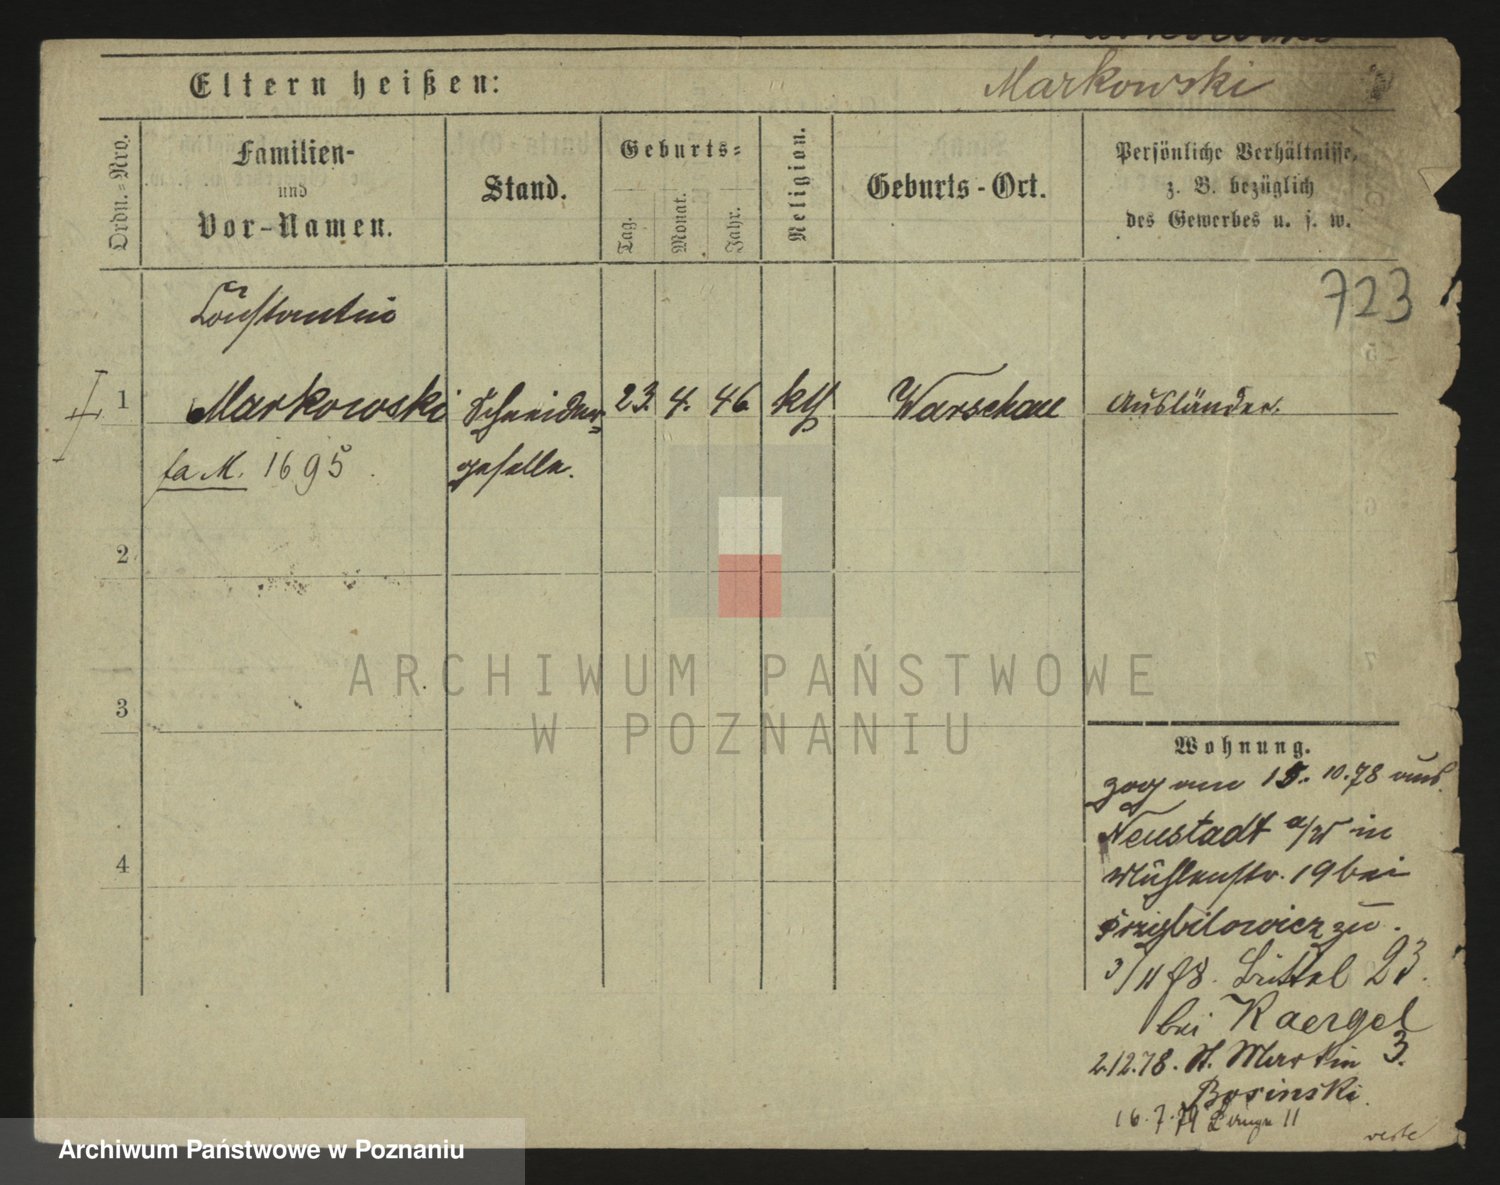 Eltern heißen:
Markowski
Ordn.=Nro.
Familien-
und
Vor-Namen.
Stand.
Geburts=
Tag.
Monat.
Jahr.
Religion.
Geburts-Ort.
Persönliche Verhältnisse,
z. B. bezüglich
des Gewerbes u. s. w.
723
Constantin
1 Markowski Schneider= 23. 4. 46 kth Warschau Ausländer.
fa M. 1695. geselle.
2
3
4
ARCHIWUM PAŃSTWOWE
W POZNANIU
Wohnung.
zog am 15. 10. 78 aus
Neustadt a/W in
Mühlenstr. 19 bei
Przybilowicz zu.
3/11 78. 23.
bei Kaergel
2.12.78. St. Martin 3.
Bosinski.
16.7.79 11
verte
Archiwum Państwowe w Poznaniu